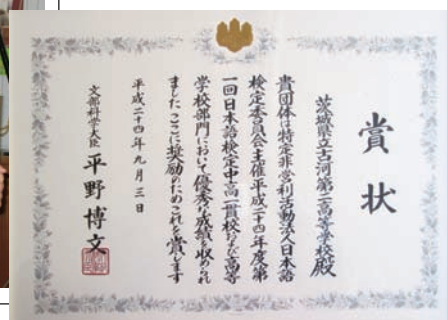 賞状
茨城県立古河第二高等学校殿
貴団体は特定非営利活動法人日本語
検定委員会主催平成二十四年度第
一回日本語検定中高一貫校および高等
学校部門において優秀な成績を収められ
ましたここに奨励のためこれを賞します
平成二十四年九月三日
文部科学大臣 平野博文